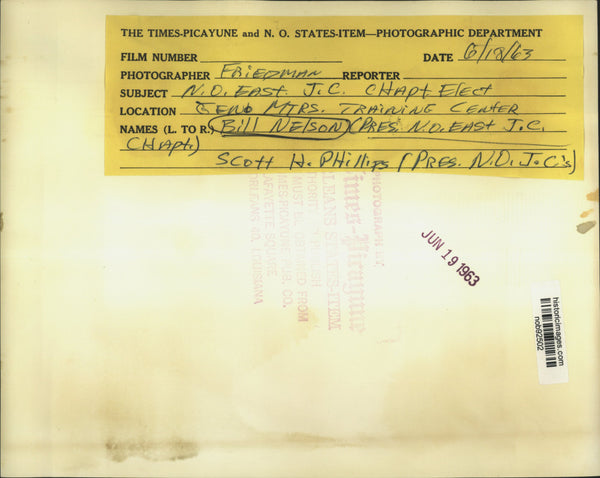 THE TIMES-PICAYUNE and N. O. STATES-ITEM—PHOTOGRAPHIC DEPARTMENT
FILM NUMBER DATE 6/18/63
PHOTOGRAPHER FRIEDMAN REPORTER
SUBJECT N.O. EAST J.C. CHAPT ELECT
LOCATION GENO MTRS. TRAINING CENTER
NAMES (L. TO R.) Bill NELSON (PRES. N.O. EAST J.C.
CHAPT.)
SCOTT H. PHILLIPS (PRES. N.O. J.C's)
PHOTOGRAPH BY
Times-Picayune
ORLEANS STATES-ITEM
MUST BE OBTAINED FROM
TIMES-PICAYUNE PUB. CO.
LAFAYETTE SQUARE
ORLEANS LOUISIANA
JUN 19 1963
historicimages.com
nob92502